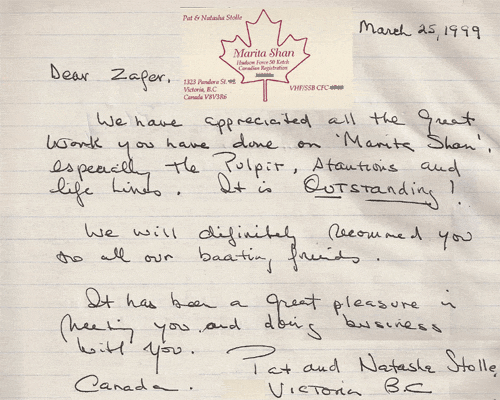 Pat & Natasha Stolle
March 25, 1999
Marita Shan
Hudson Force 50 Ketch
Canadian Registration
Dear Zager.
1325 Pandora St.
Victoria, B.C
Canada V8V3R6
VHF/SSB CFC
We have appreciated all the Great
work you have done on 'Marita Shan',
especially the Pulpit, stantions and
life lines. It is OUTStanding!
We will difinitely recommed you
to all our boating friends.
It has been a great pleasure in
meeting you and doing business
with you.
Pat and Natasha Stolle
Canada.
Victoria B.C